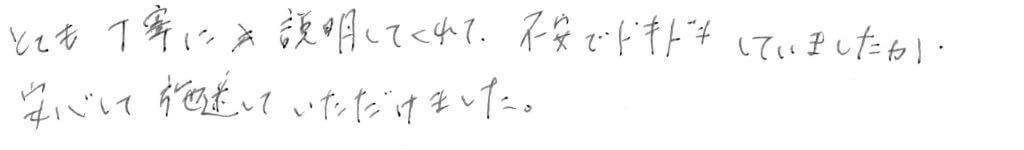 とても丁寧に説明してくれて、不安でドキドキしていましたが、
安心して施術していただけました。